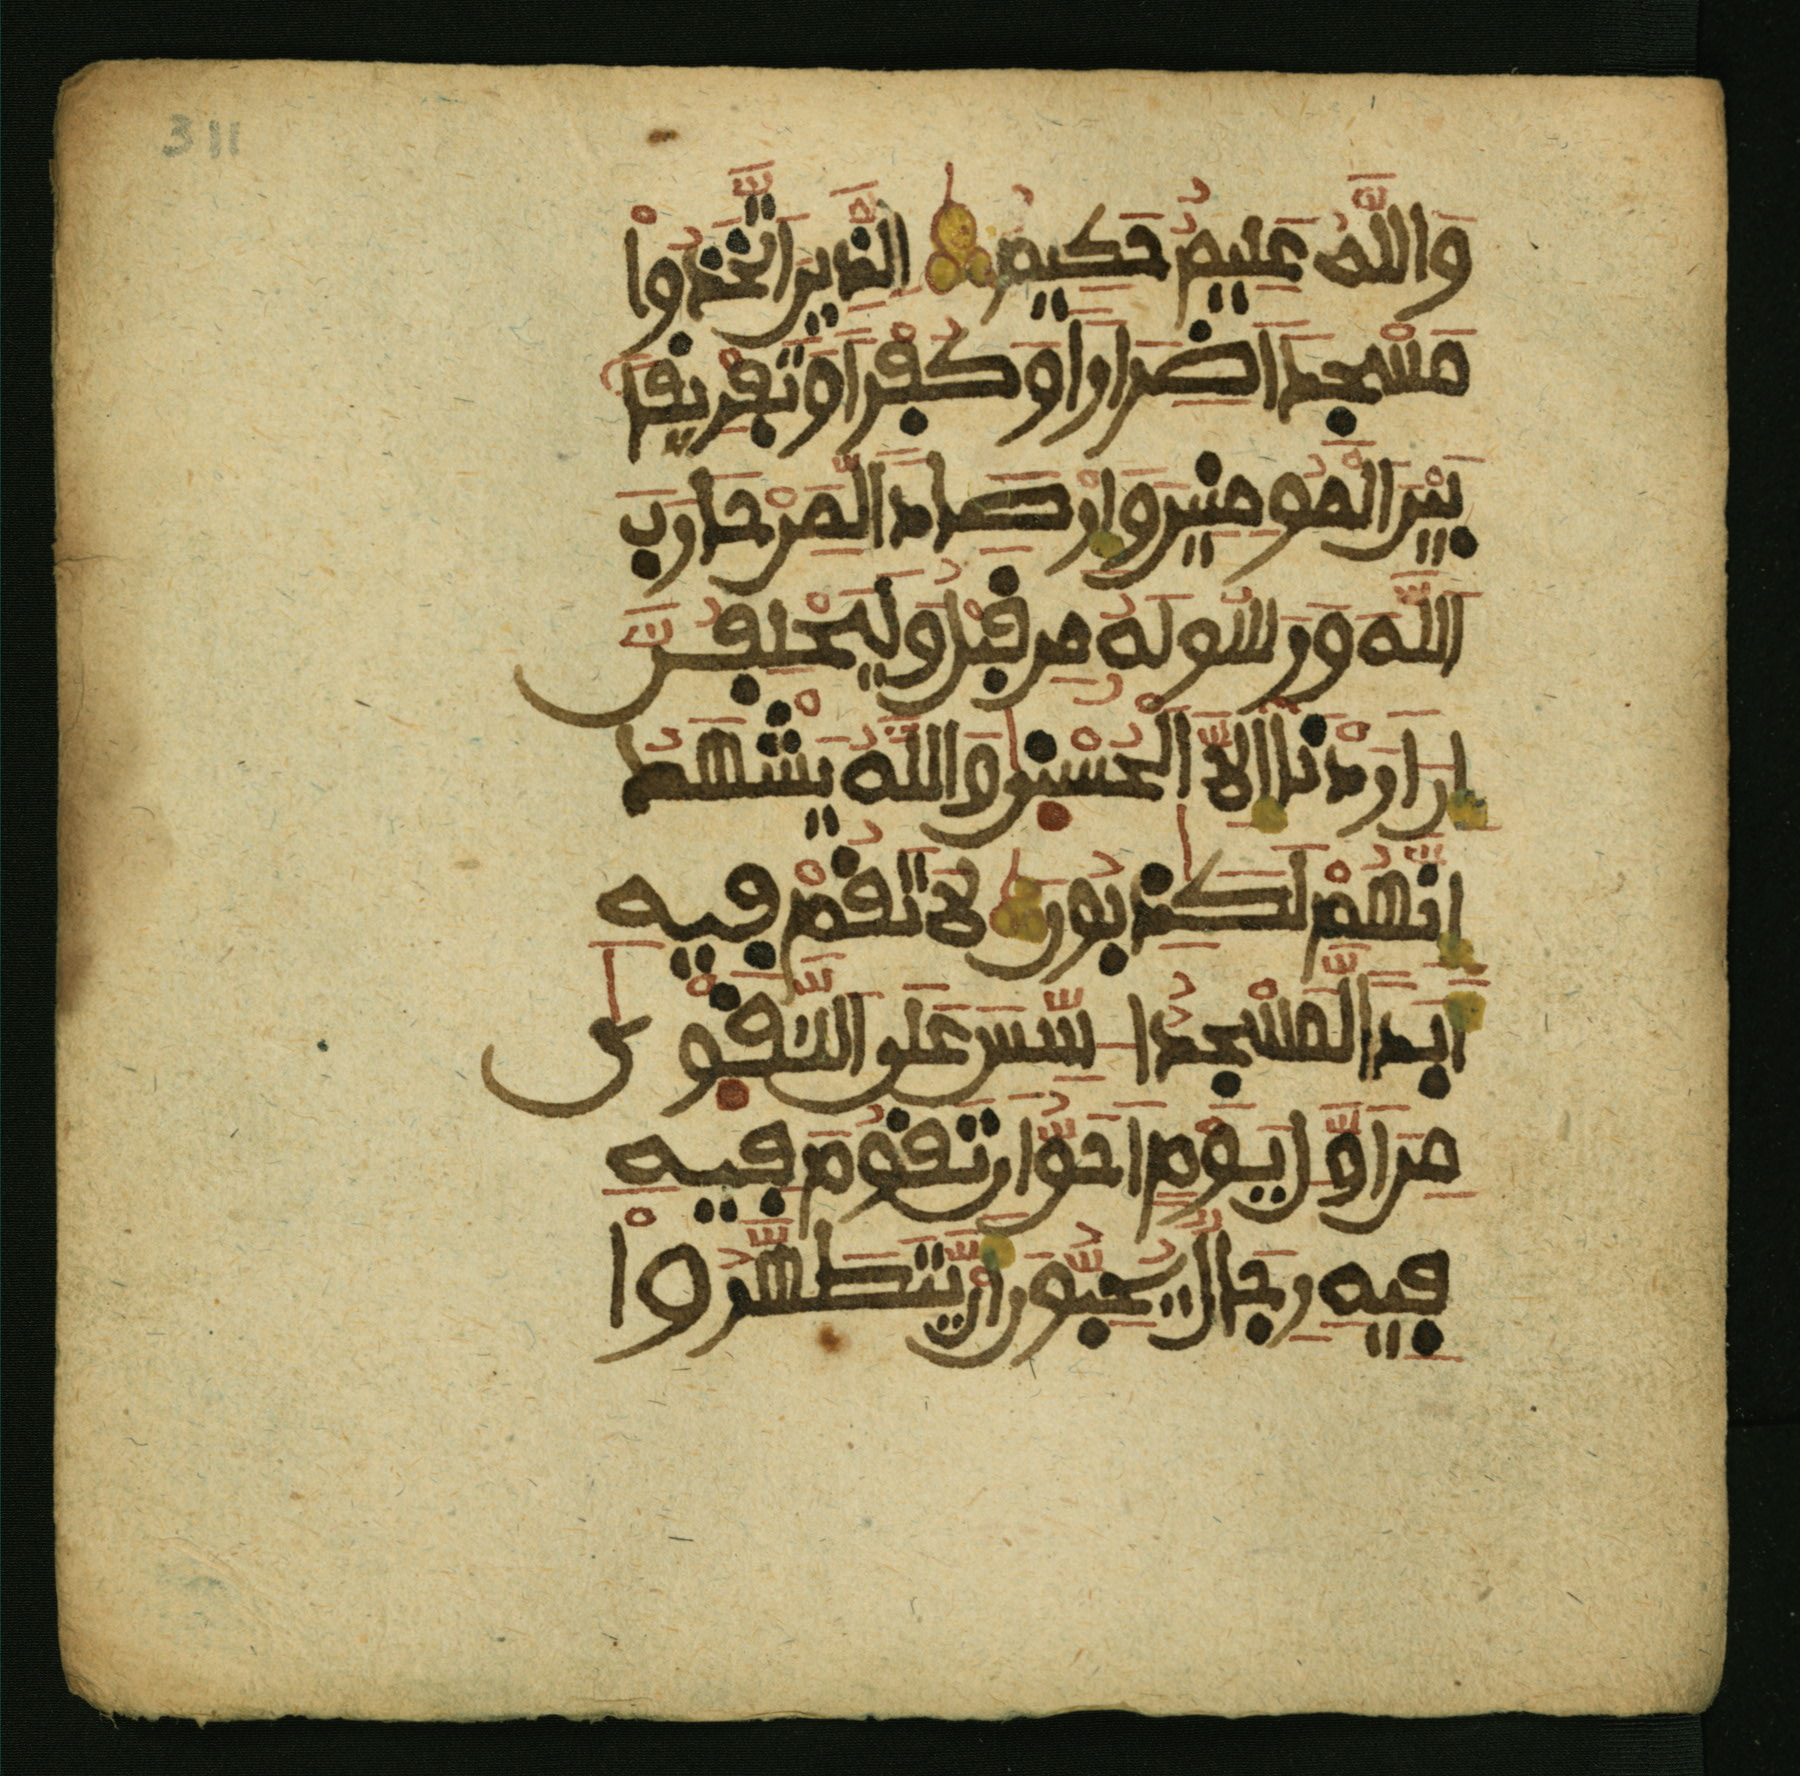 311
وَاللَّهُ عَلِيمٌ حَكِيمٌ الَّذِينَ اتَّخَذُواْ
مَسْجِداً ضِرَاراً وَكُفْراً وَتَفْرِيقاً
بَيْنَ الْمُومِنِينَ وَإِرْصَاداً لِّمَنْ حَارَبَ
اللَّهَ وَرَسُولَهُ مِن قَبْلُ وَلَيَحْلِفُنَّ
إِنَ اَرَدْنَا إِلاَّ الْحُسْنى وَاللَّهُ يَشْهَدُ
إِنَّهُمْ لَكَٰذِبُونَ لاَ تَقُمْ فِيهِ
أَبَداً لَّمَسْجِدٌ ا سِّسَ عَلَى التَّقْوى
مِنَ اَوَّلِ يَوْمٍ اَحَقُّ أَن تَقُومَ فِيهِ
فِيهِ رِجَالٌ يُحِبُّونَ أَنْ يَّتَطَهَّرُواْ